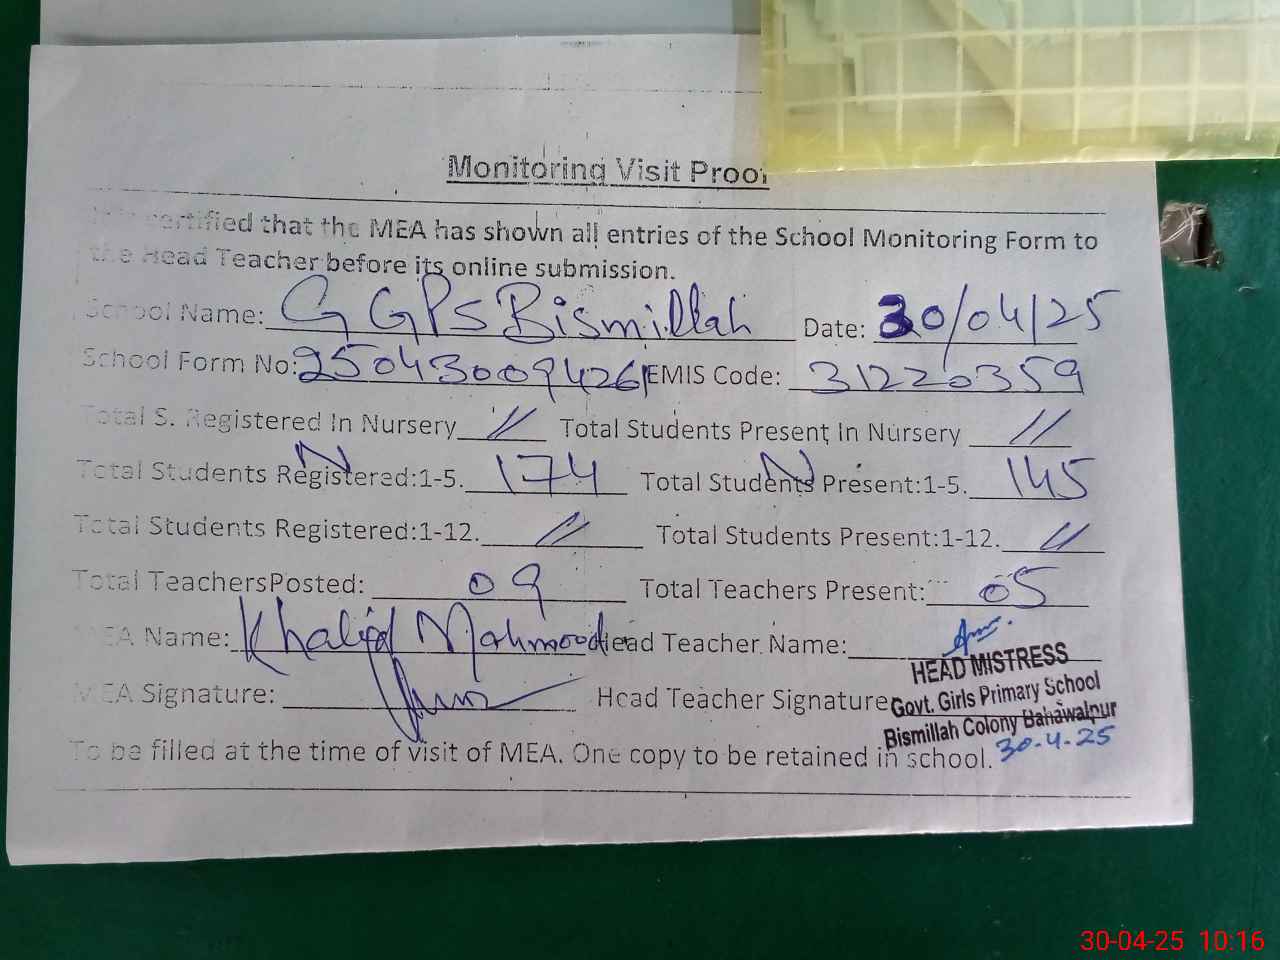 Monitoring Visit Proof
certified that the MEA has shown all entries of the School Monitoring Form to
the Head Teacher before its online submission.
School Name: GGPS Bismillah Date: 30/04/25
School Form No: 250430094261 EMIS Code: 31220359
Total S. Registered In Nursery // Total Students Present In Nursery //
N N
Total Students Registered:1-5. 174 Total Students Present:1-5. 145
Total Students Registered:1-12. // Total Students Present:1-12. //
Total TeachersPosted: 09 Total Teachers Present: 05
MEA Name: Khalid Mahmood Head Teacher Name:
MEA Signature: Head Teacher Signature
HEAD MISTRESS
Govt. Girls Primary School
Bismillah Colony Bahawalpur
30-4-25
To be filled at the time of visit of MEA. One copy to be retained in school.
30-04-25 10:16